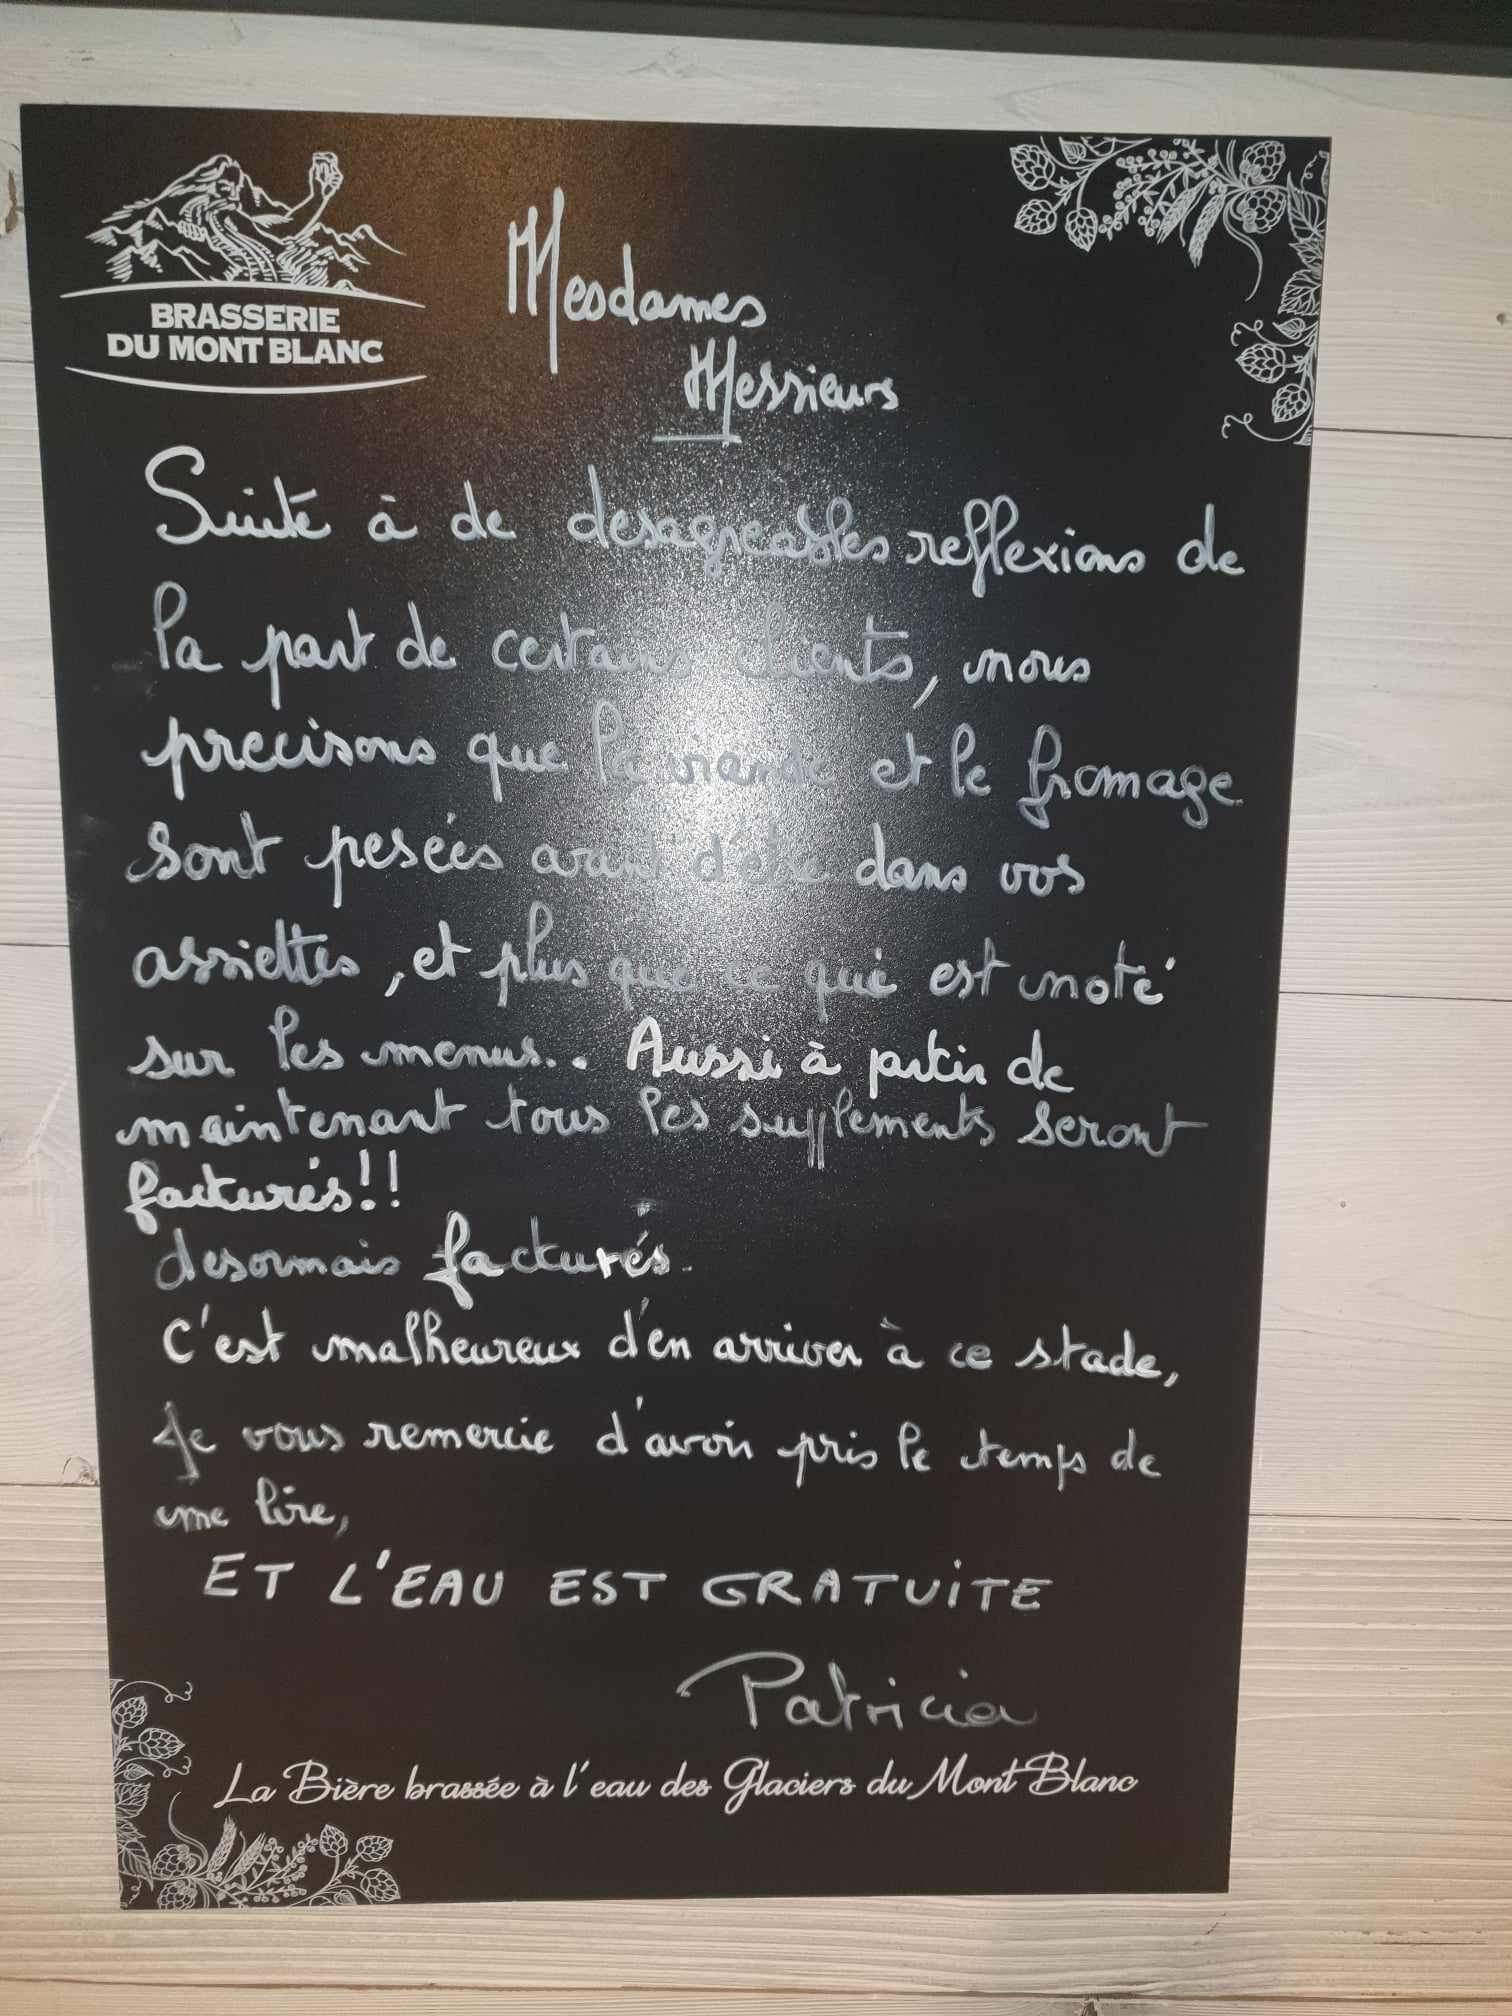 BRASSERIE
DU MONT BLANC
Mesdames
Messieurs
Suite à de desagreables reflexions de
la part de certains clients, nous
precisons que la viande et le fromage
sont pesées avant d'être dans vos
assiettes, et plus que ce qui est noté
sur les menus.. Aussi à partir de
maintenant tous les supplements seront
facturés!!
desormais facturés.
C'est malheureux d'en arriver à ce stade,
Je vous remercie d'avoir pris le temps de
me lire,
ET L'EAU EST GRATUITE
Patricia
La Bière brassée à l'eau des Glaciers du Mont Blanc